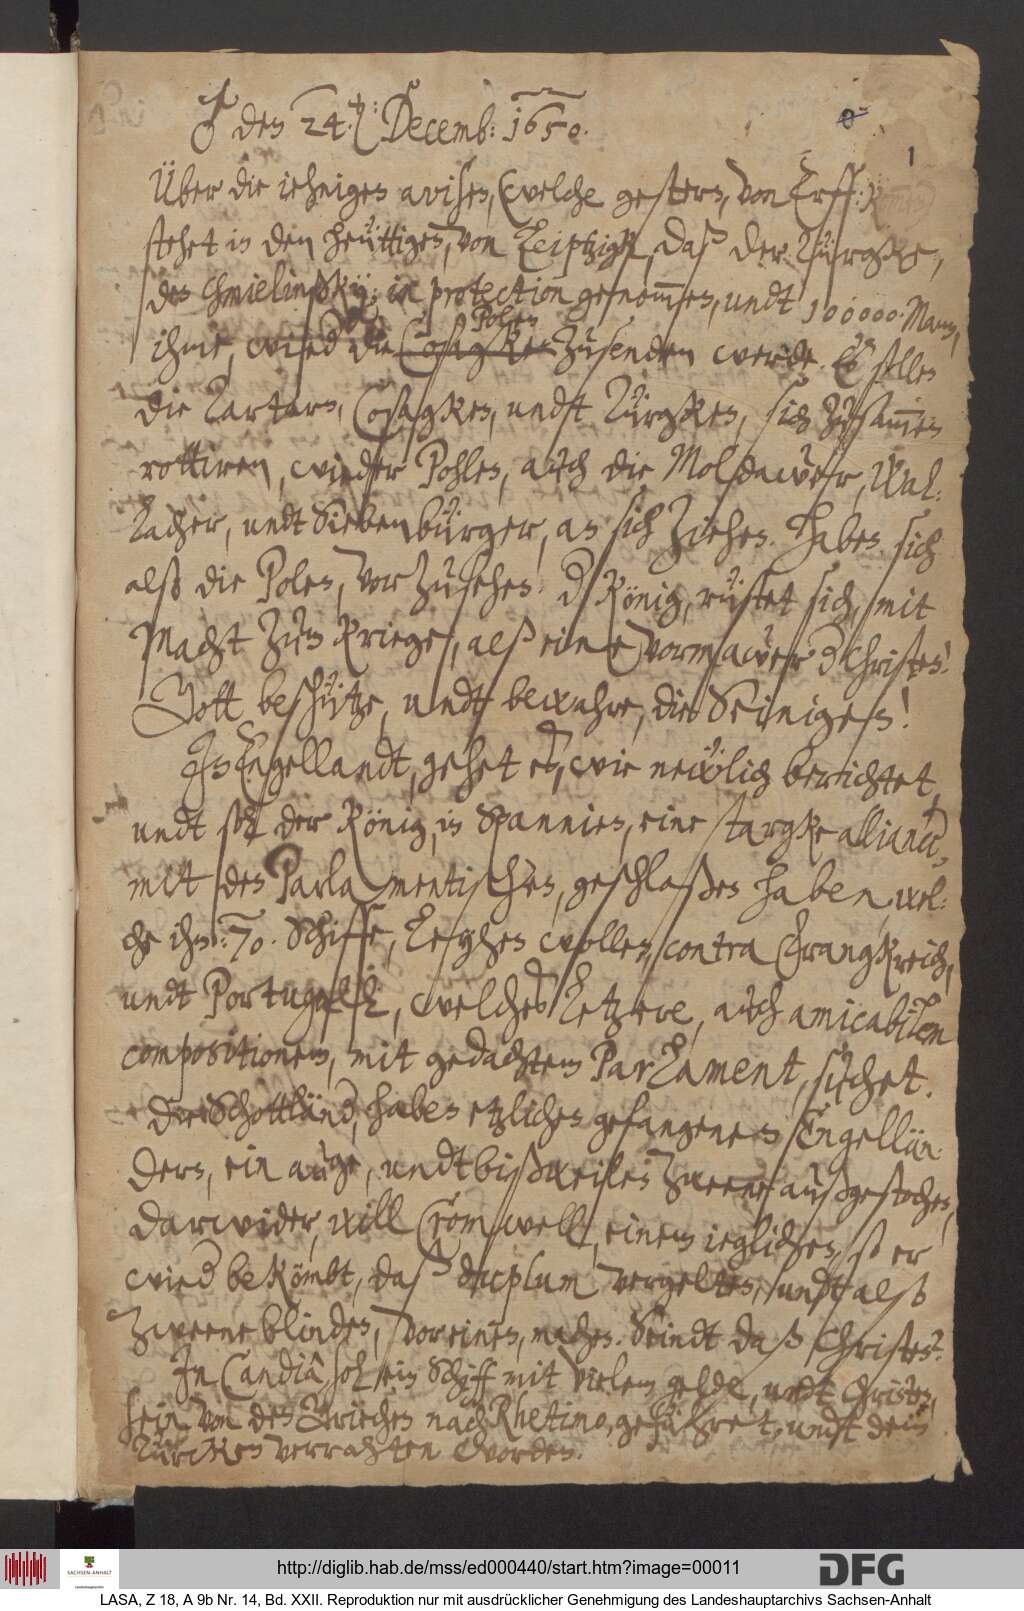 ♂ den 24.ten: Decemb: 1650.
1
Über die iehnigen avisen, welche gestern, von Erff:
stehet in den heüttigen, von Leiptzigk, daß der Türgke,
den Chmielinßky, in protection genommen, undt 100000 Mann,
ihme, wied die Polen zusenden werde. Es sollen
die Tartarn, Cosagken, undt Türgken, sich zusammen
rottiren, wieder Pohlen, auch die Moldawer, Wal-
lacher, undt Siebenbürger, an sich ziehen. Haben sich
alß die Polen, vorzusehen. d König, rüstet sich, mit
Macht zum kriege, alß eine Vormawer d Christen!
Gott beschütze, undt bewahre, die Seinigen!
In Engellandt, gehet es, wie newlich berichtet,
undt sol der König, in Spannien, eine stargke allianz,
mit den Parlamentischen, geschlaßen haben, wel-
che ihm: 70. Schiffe, leyhen wollen, contra Frangkreich,
undt Portugall, welches letzere, auch amicabilem
compositionem, mit gedachtem Parlament, suchet.
Die Schottländ, haben etzlichen gefangenen Engellän-
dern, ein auge, undt bißweilen zweene außgestochen,
darwider, will Cromwell, einem ieglichen, so er
wied bekömbt, daß duplum vergelten, undt alß
zweene blinden, vor einen, machen. Seindt daß Christen?
In Candia, sol ein Schiff mit vielem gelde, undt Christen,
sein von den Griechen nach Rhetimo, geführet, undt dem
Türcken verrahten worden.
http://diglib.hab.de/mss/ed000440/start.htm?image=00011
SACHSEN-ANHALT
DFG
LASA, Z 18, A 9b Nr. 14, Bd. XXII. Reproduktion nur mit ausdrücklicher Genehmigung des Landeshauptarchivs Sachsen-Anhalt